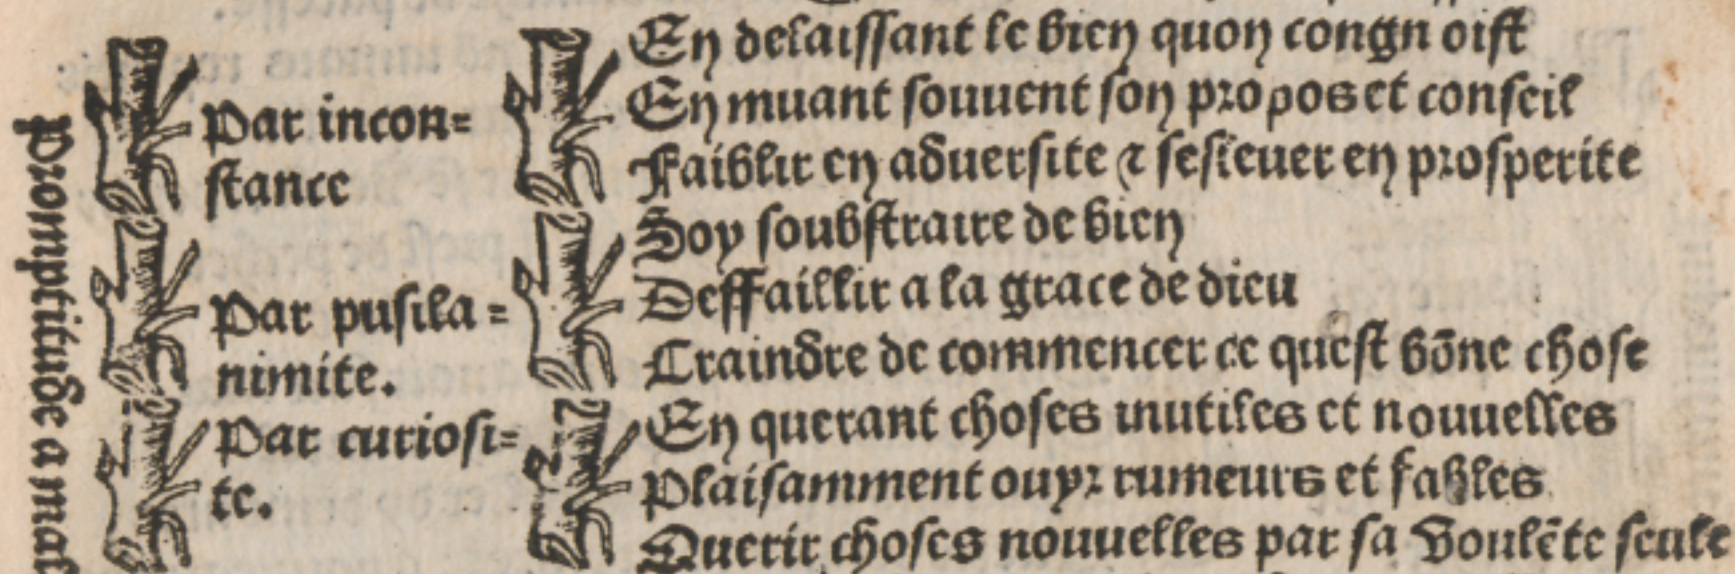 Promptitude a mal
Par incon=
stance
En delaissant le bien quon congn oist
En muant souuent son propos et conseil
Faiblir en aduersite ⁊ sesleuer en prosperite
Par pusila=
nimite.
Soy soubstraire de bien
Deffaillir a la grace de dieu
Craindre de commencer ce quest bõne chose
Par curiosi=
te.
En querant choses inutiles et nouuelles
Plaisamment ouyr rumeurs et fables
Querir choses nouuelles par sa voulẽte seule